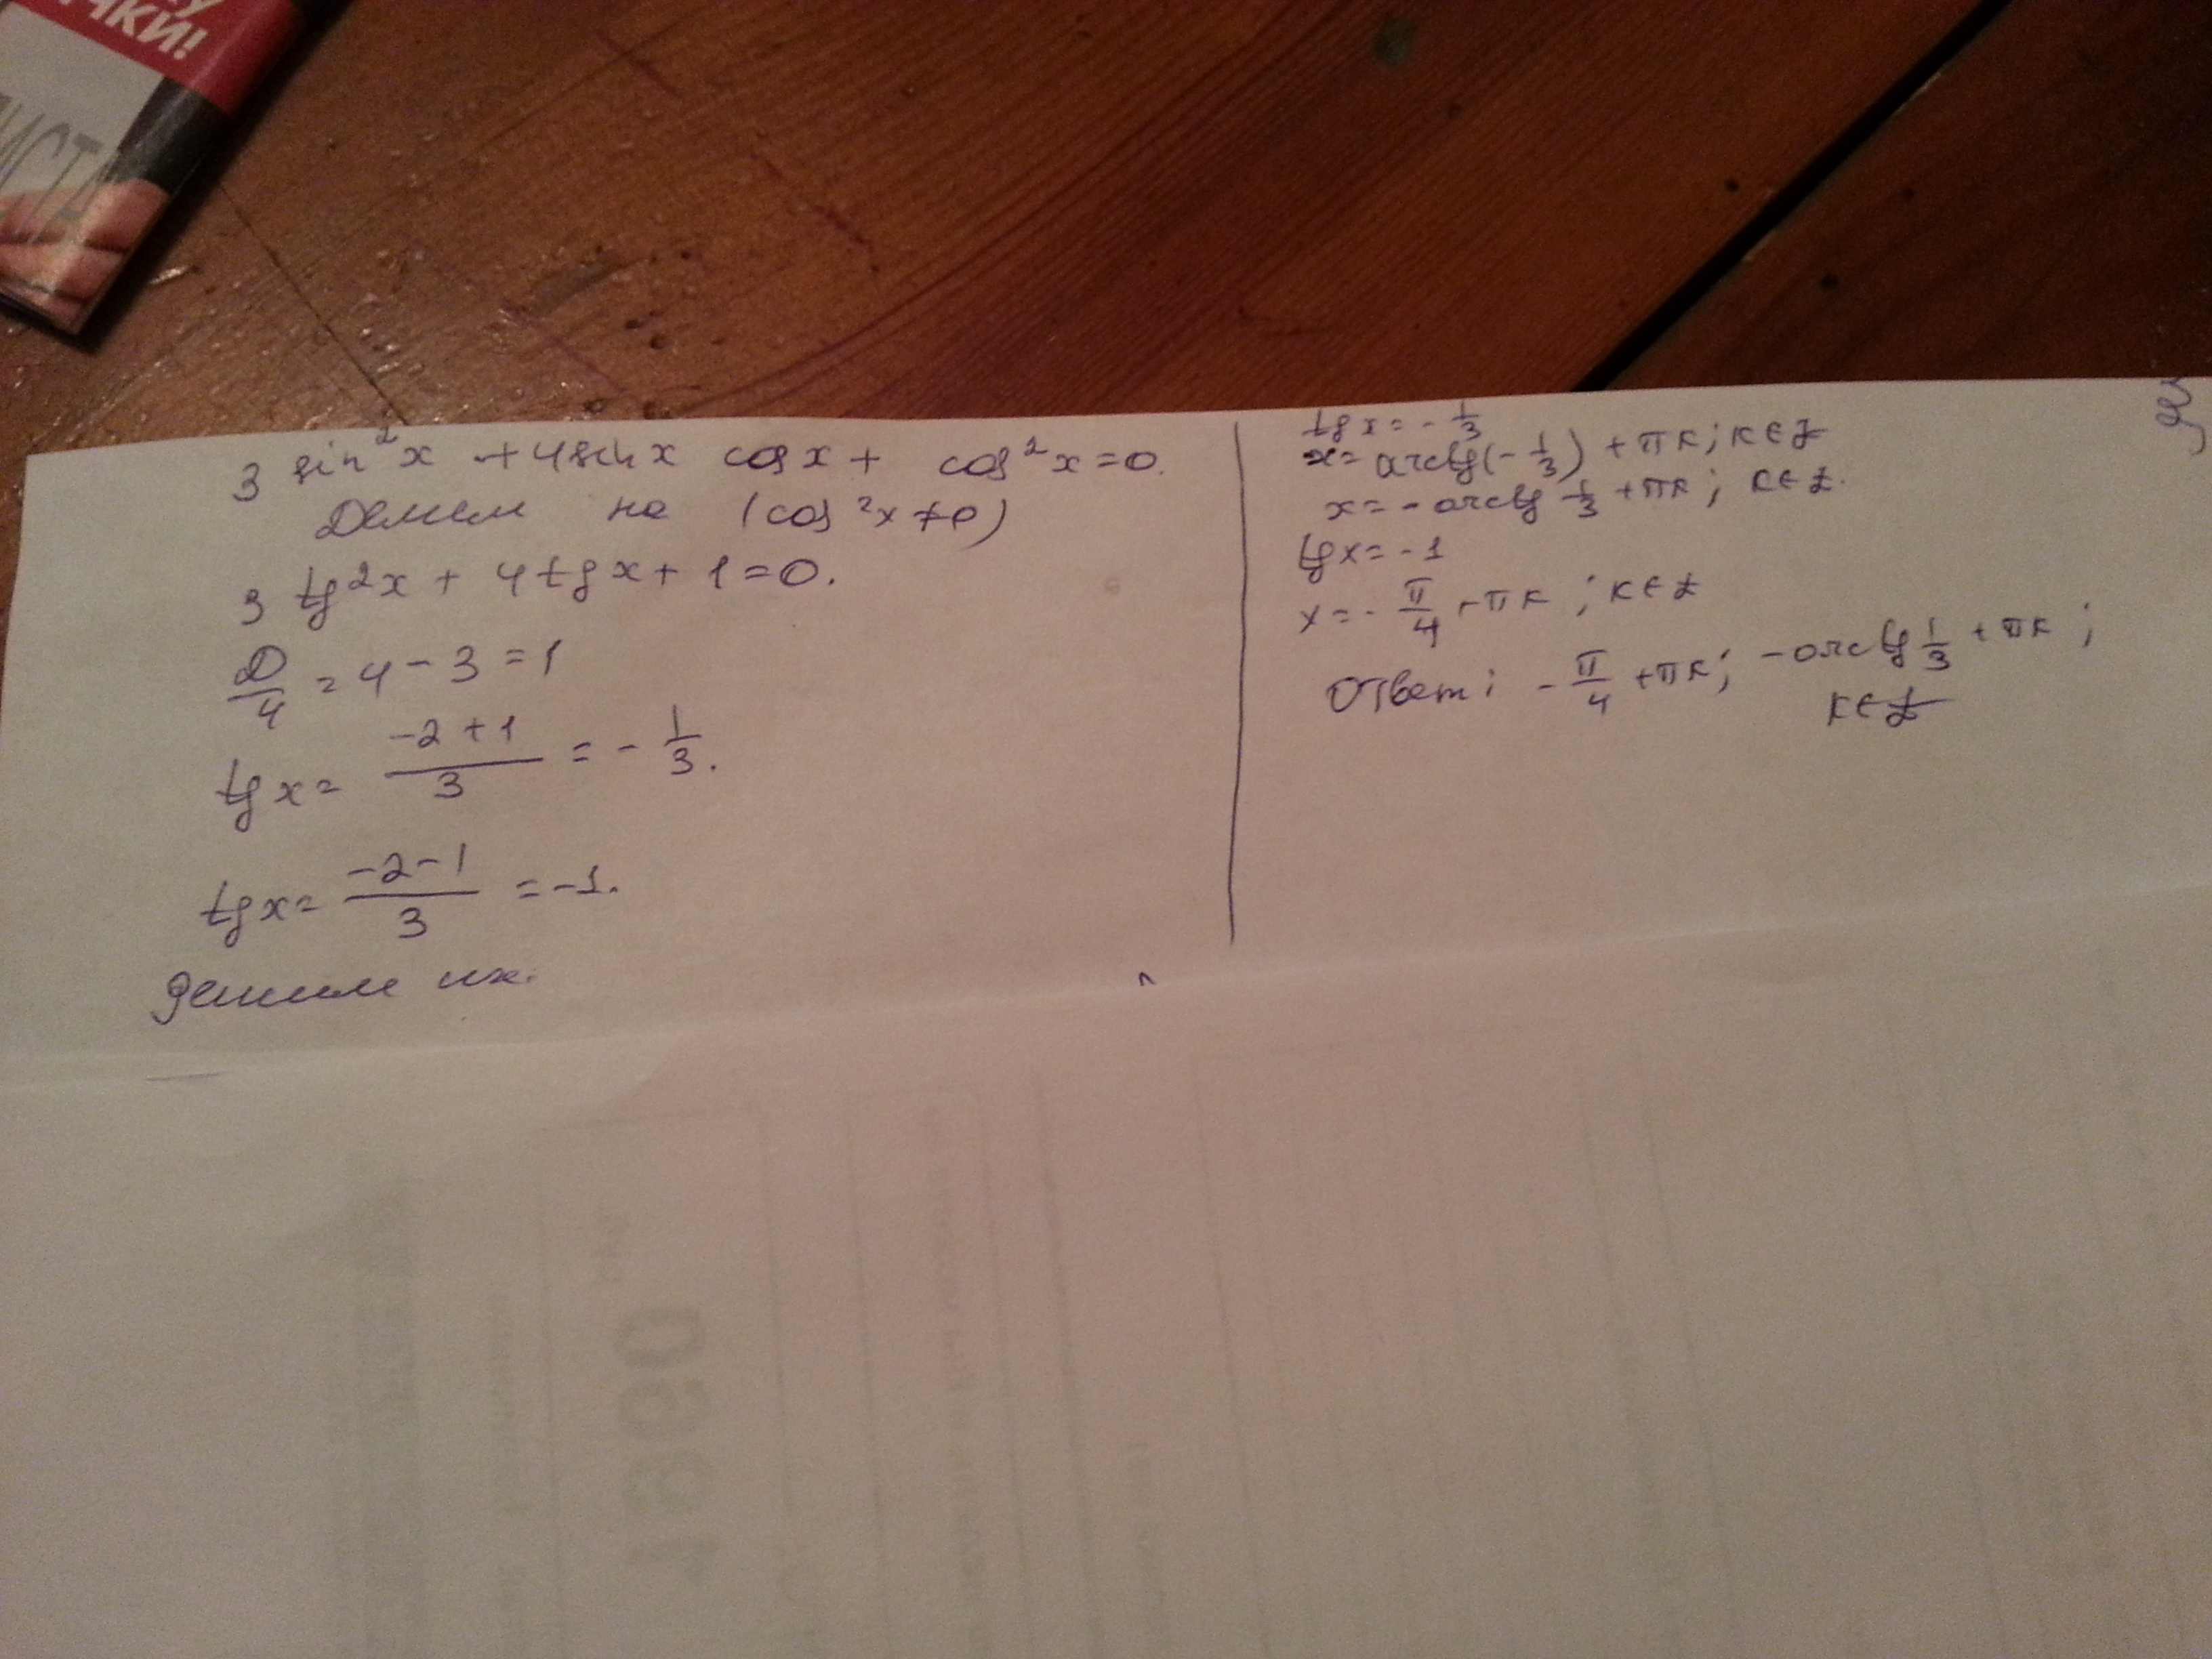 ЧКИ!
ИСТА
3 sin²x + 4 sin x cos x + cos²x = 0.
Делим на (cos²x ≠ 0)
3 tg²x + 4 tg x + 1 = 0.
D/4 = 4 - 3 = 1
tg x = (-2 + 1)/3 = - 1/3.
tg x = (-2 - 1)/3 = -1.
решим их.
tg x = - 1/3
x = arctg(- 1/3) + πк; к ∈ Z
x = - arctg 1/3 + πк; к ∈ Z.
tg x = - 1
x = - π/4 + πк; к ∈ Z
Ответ: - π/4 + πк; - arctg 1/3 + πк;
к ∈ Z